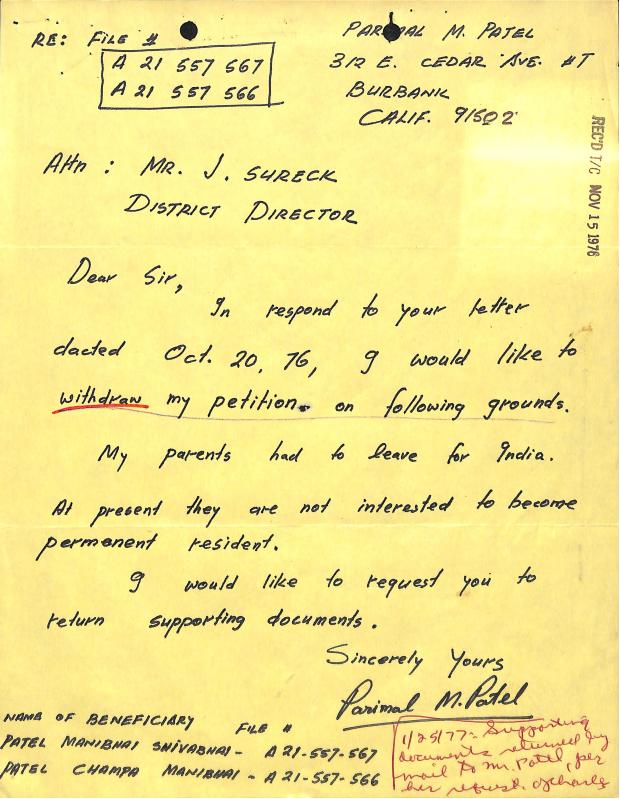 RE: FILE #
A 21 557 567
A 21 557 566
PARIMAL M. PATEL
312 E. CEDAR AVE. #T
BURBANK
CALIF. 91502
REC'D T/C NOV 15 1976
Attn: MR. J. SURECK
DISTRICT DIRECTOR
Dear Sir,
In respond to your letter
dacted Oct. 20, 76, I would like to
withdraw my petition. on following grounds.
My parents had to leave for India.
At present they are not interested to become
permenent resident.
I would like to request you to
return supporting documents.
Sincerely Yours
Parimal M. Patel
NAME OF BENEFICIARY FILE #
PATEL MANIBHAI SHIVABHAI - A 21-557-567
PATEL CHAMPA MANIBHAI - A 21-557-566
1/25/77 - Supporting
documents returned by
mail to Mr. Patel, per
her request.